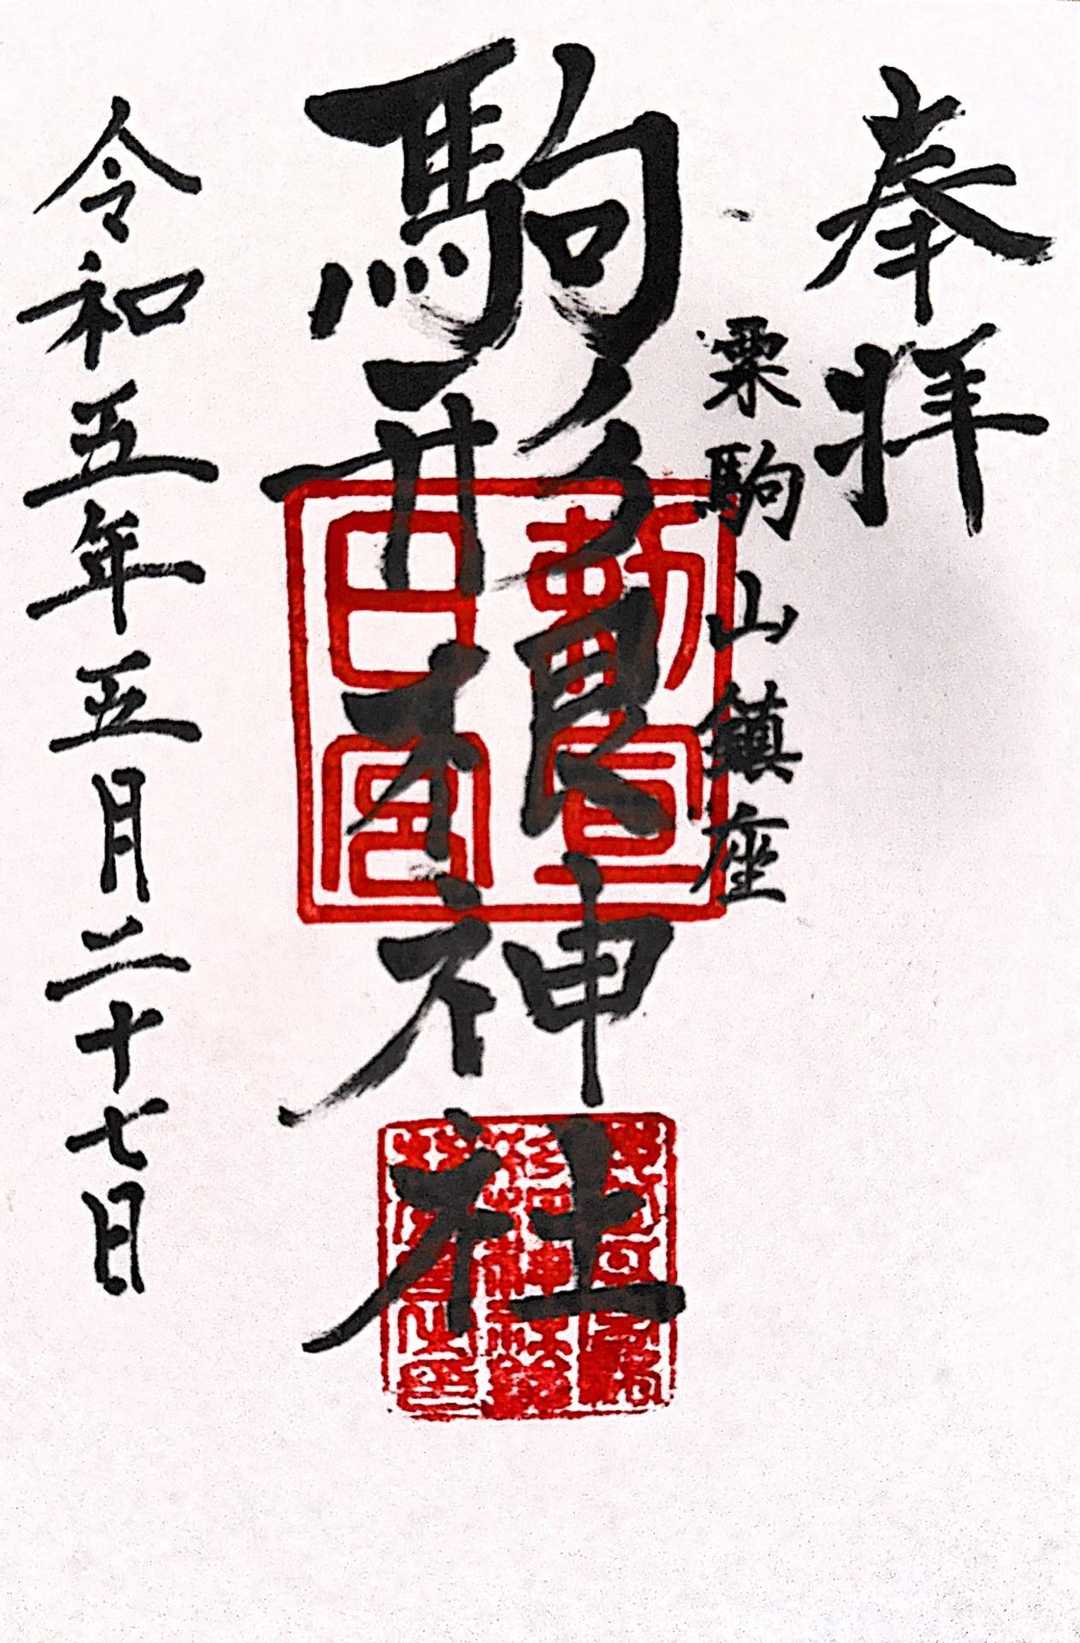 奉拝
栗駒山鎮座
駒形根神社
勅宣
日宮
令和五年五月二十七日